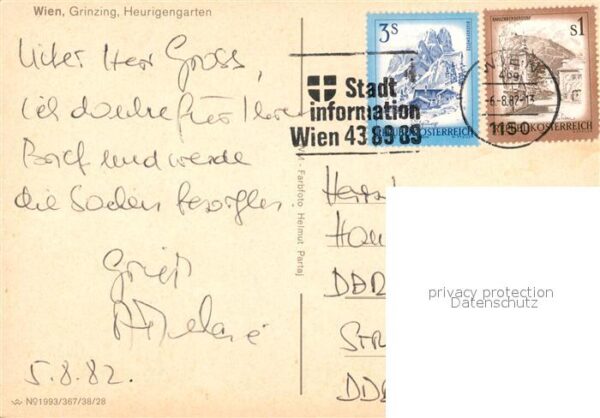 Wien, Grinzing, Heurigengarten
Lieber Herr Gross,
ich danke für Ihren
Brief und werde
die Sachen besorgen.
Gruß
5.8.82.
W No 1993/367/38/28
Farbfoto Helmut Partaj
Stadt
information
Wien 43 89 89
3s
REPUBLIK ÖSTERREICH
s1
REPUBLIK ÖSTERREICH
WIEN
-6.-8.82-13
1150
Herrn
DDR
DD
privacy protection
Datenschutz